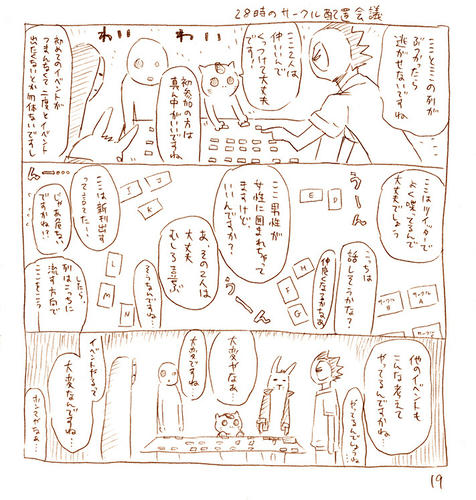 28時のサークル配置会議
こことここの列が
ぶつかったら
逃がせないですね
ここ2人は
仲いいんで
くっつけて大丈夫
です!
わい
わい
初参加の方は
真ん中がいいですね
初めてのイベントが
つまんなくて二度とイベント
出たくないとか勿体ないですし
ここはツイッターで
よく喋ってるんで
大丈夫でしょう
うーん
E
D
こっちは
話しそうかな?
仲良くなるかなぁ
サークル
B
サークル
A
サークル
ここ男性が
女性に囲まれちゃって
ますけど、
いいんですか?
あ、その2人は
大丈夫
むしろ喜ぶ
そうなんですね…
うーん
H
F
G
I
J
K
ここは新刊出す
って言ってた…
じゃあ危ない
ですかね!?
んー…
L
M
N
したら、
列はこっちに
流す方向で
ここをこう
他のイベントも
こんな考えて
やってるんですかね
やってるんでしょうね
大変だなぁ…
大変ですね…
イベントやるって
大変なんですね…
ホンマやなぁ…
19